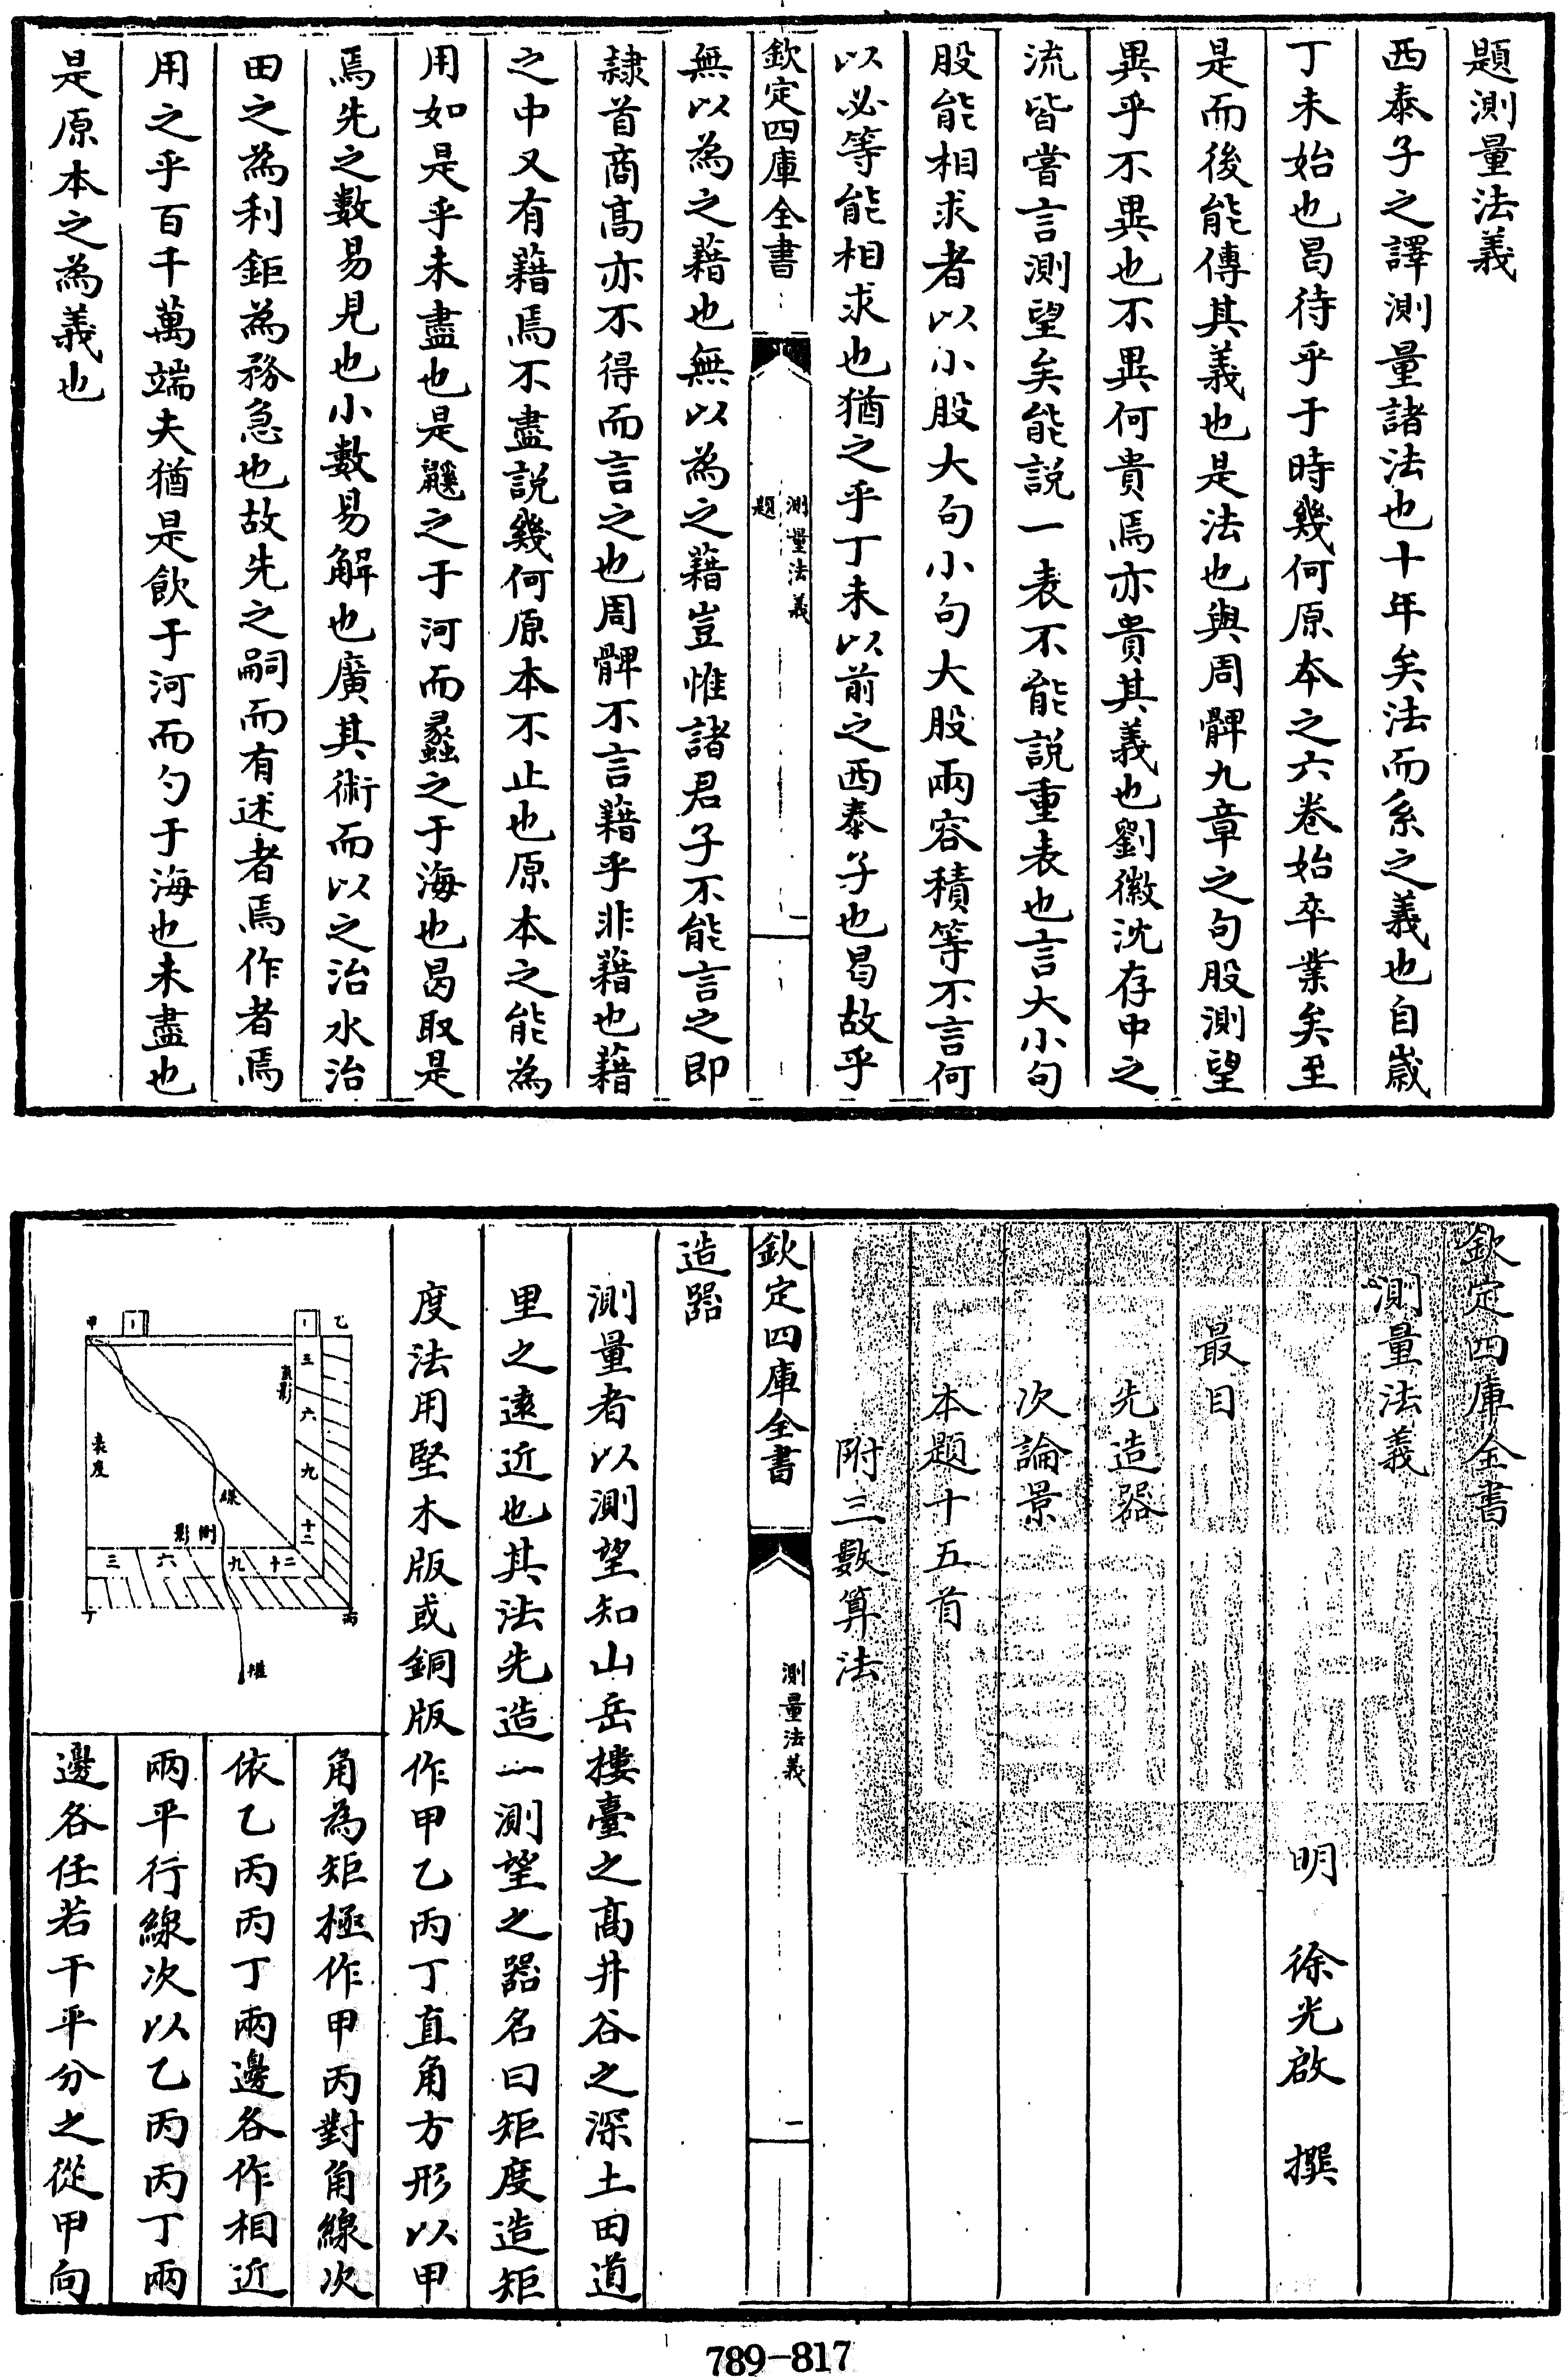 題測量法義
西泰子之譯測量諸法也十年矣法而系之義也自嵗
丁未始也曷待乎于時幾何原本之六卷始卒業矣至
是而後能傳其義也是法也與周髀九章之句股測望
異乎不異也不異何貴焉亦貴其義也劉徽沈存中之
流皆嘗言測望矣能説一表不能説重表也言大小句
股能相求者以小股大句小句大股兩容積等不言何
以必等能相求也猶之乎丁未以前之西泰子也曷故乎
欽定四庫全書
測量法義
題
一
無以為之藉也無以為之藉豈惟諸君子不能言之即
隸首商髙亦不得而言之也周髀不言藉乎非藉也藉
之中又有藉焉不盡説幾何原本不止也原本之能為
用如是乎未盡也是鼷之于河而蠡之于海也曷取是
焉先之數易見也小數易解也廣其術而以之治水治
田之為利鉅為務急也故先之嗣而有述者焉作者焉
用之乎百千萬端夫猶是飲于河而勺于海也未盡也
是原本之為義也
欽定四庫全書
測量法義
明 徐光啟 撰
最目
先造器
次論景
本題十五首
附三數算法
欽定四庫全書
測量法義
二
造器
測量者以測望知山岳樓臺之髙井谷之深土田道
里之遠近也其法先造一測望之器名曰矩度造矩
度法用堅木版或銅版作甲乙丙丁直角方形以甲
角為矩極作甲丙對角線次
依乙丙丙丁兩邊各作相近
兩平行線次以乙丙丙丁兩
邊各任若干平分之從甲向
甲
乙
丙
丁
直影
三
六
九
十二
表度
線
倒影
三
六
九
十二
權
789-817